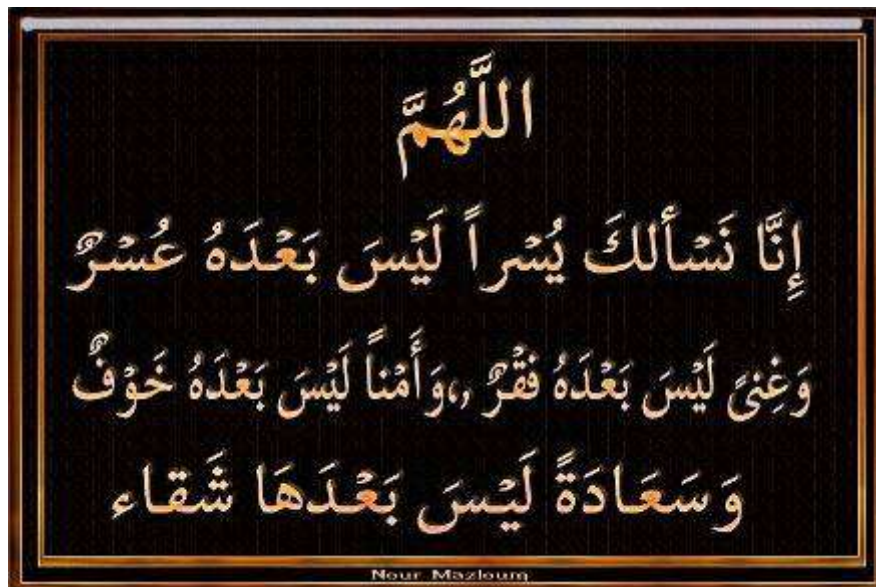 اللَّهُمَّ
إِنَّا نَسْألكَ يُسْراً لَيْسَ بَعْدَهُ عُسْرٌ
وَغِنىً لَيْسَ بَعْدَهُ فَقْرٌ ,،وَأَمْناً لَيْسَ بَعْدَهُ خَوْفٌ
وَسَعَادَةً لَيْسَ بَعْدَهَا شَقاء
Nour Mazloum